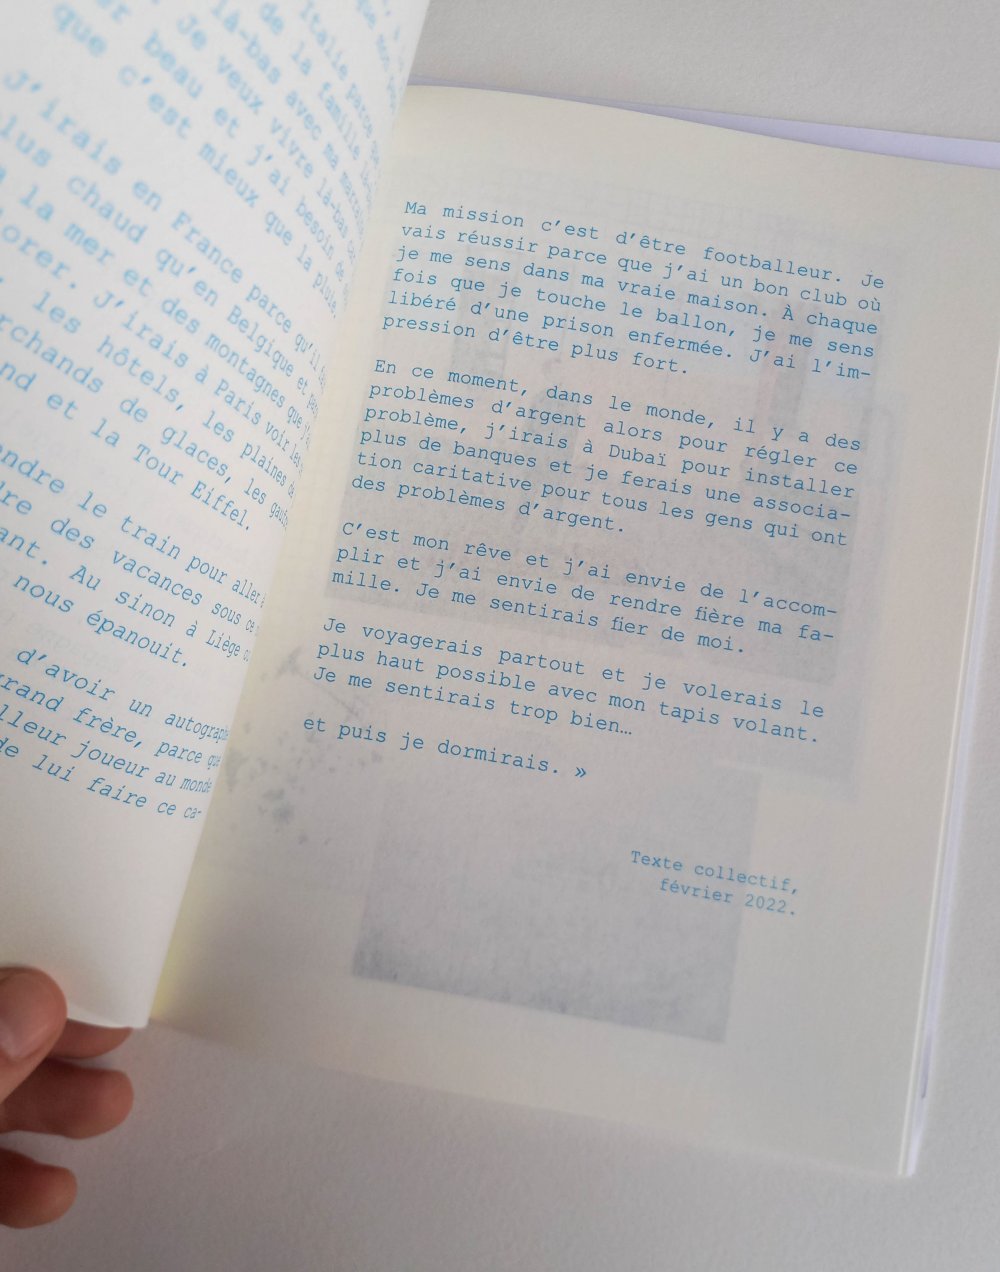 Italie parce
de la famille
là-bas avec ma
Je veux vivre là-bas
beau et j'ai besoin de
que c'est mieux que la pluie
J'irais en France parce qu'il
plus chaud qu'en Belgique et
la mer et des montagnes que
J'irais à Paris voir
les hôtels, les plaines de
marchands de glaces, les
et la Tour Eiffel.
le train pour aller
des vacances sous ce
Au sinon à Liège
nous épanouit.
d'avoir un autographe
grand frère, parce que
joueur au monde
de lui faire ce ca-
Ma mission c'est d'être footballeur. Je
vais réussir parce que j'ai un bon club où
je me sens dans ma vraie maison. À chaque
fois que je touche le ballon, je me sens
libéré d'une prison enfermée. J'ai l'im-
pression d'être plus fort.
En ce moment, dans le monde, il y a des
problèmes d'argent alors pour régler ce
problème, j'irais à Dubaï pour installer
plus de banques et je ferais une associa-
tion caritative pour tous les gens qui ont
des problèmes d'argent.
C'est mon rêve et j'ai envie de l'accom-
plir et j'ai envie de rendre fière ma fa-
mille. Je me sentirais fier de moi.
Je voyagerais partout et je volerais le
plus haut possible avec mon tapis volant.
Je me sentirais trop bien…
et puis je dormirais. »
Texte collectif,
février 2022.